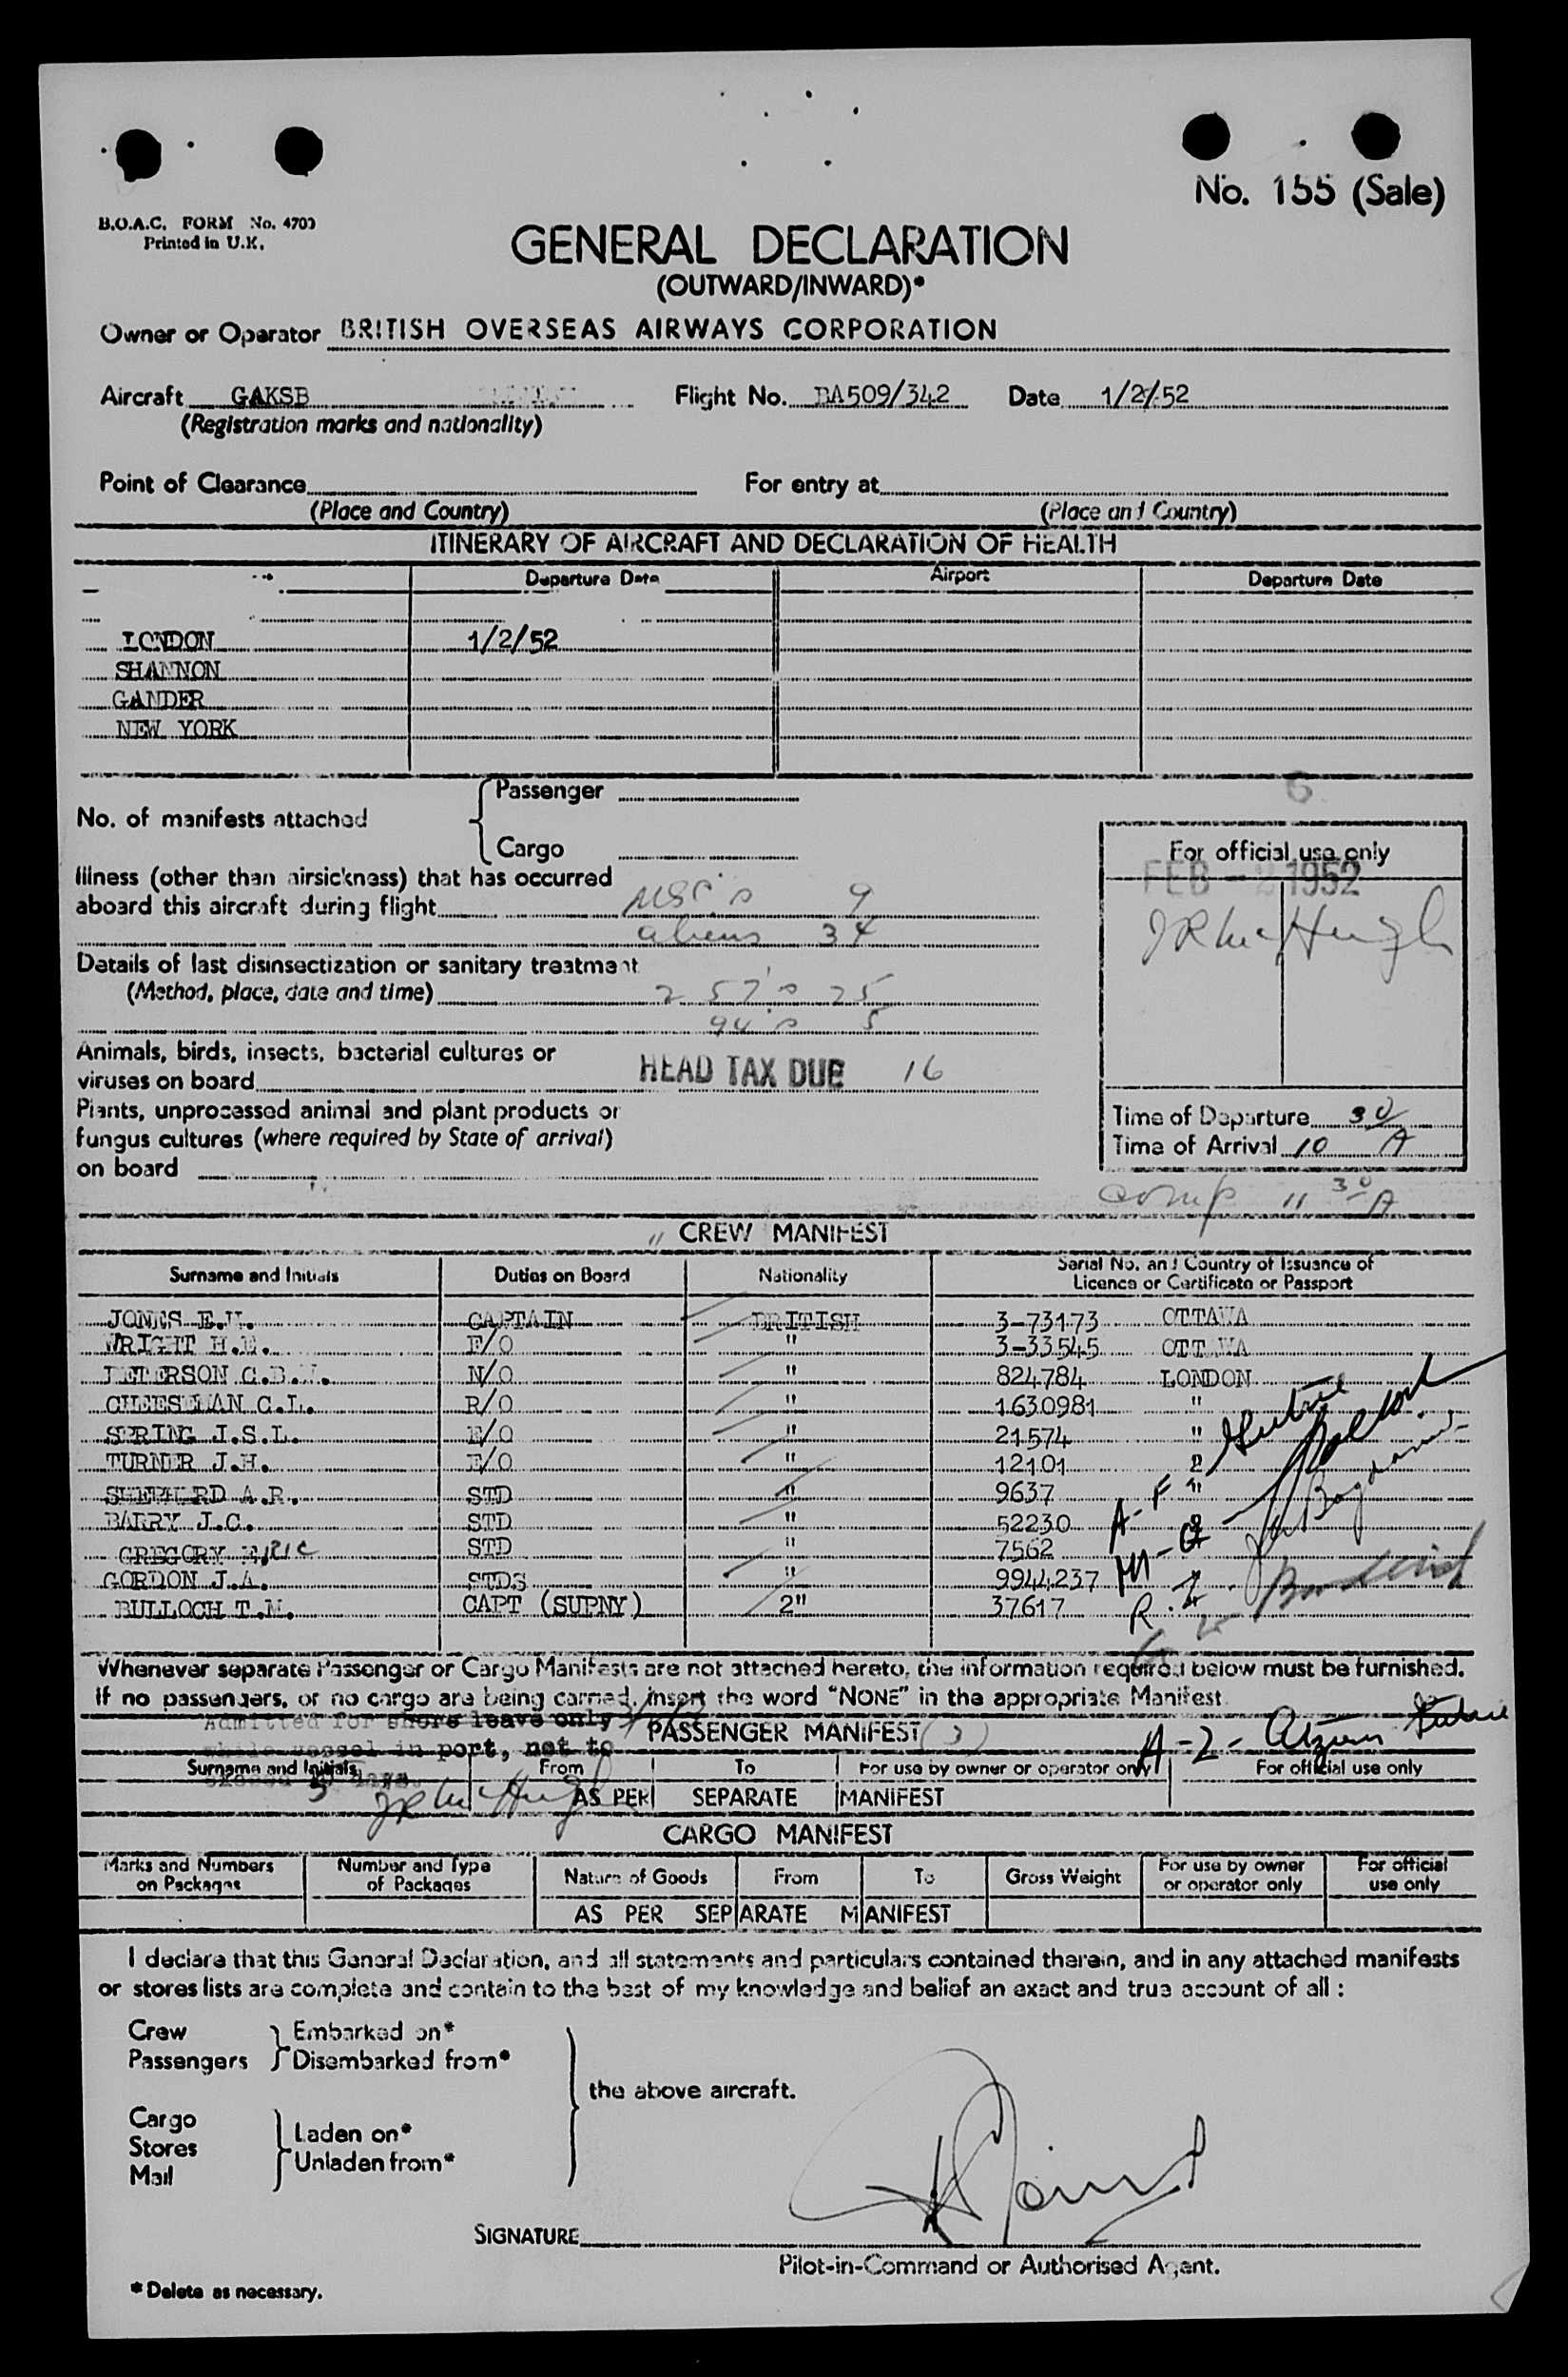 No. 155 (Sale)
B.O.A.C. FORM No. 4700
Printed in U.K.
GENERAL DECLARATION
(OUTWARD/INWARD)*
Owner or Operator BRITISH OVERSEAS AIRWAYS CORPORATION
Aircraft GAKSB Flight No. BA509/342 Date 1/2/52
(Registration marks and nationality)
Point of Clearance For entry at
(Place and Country) (Place and Country)
ITINERARY OF AIRCRAFT AND DECLARATION OF HEALTH
Departure Date Airport Departure Date
LONDON 1/2/52
SHANNON
GANDER
NEW YORK
6
No. of manifests attached
Passenger
Cargo
For official use only
FEB - 2 1952
JR McHugh
Illness (other than airsickness) that has occurred
aboard this aircraft during flight USC's 9
aliens 34
Details of last disinsectization or sanitary treatment
(Method, place, date and time) 257's 25
94's 5
Animals, birds, insects, bacterial cultures or
viruses on board HEAD TAX DUE 16
Plants, unprocessed animal and plant products or
fungus cultures (where required by State of arrival)
on board
Time of Departure
Time of Arrival 10 30 A
comp 11 30 A
11 CREW MANIFEST
Surname and Initials Duties on Board Nationality Serial No. and Country of Issuance of
Licence or Certificate or Passport
JONES E. CAPTAIN BRITISH 3-73173 OTTAWA
WRIGHT H. F/O " 3-33545 OTTAWA
PETERSON C.B. N/O " 824784 LONDON
CHEESEMAN C.L. R/O " 1630981 "
SPRING J.S.L. E/O " 21574 "
TURNER J.H. E/O " 12101 "
SHEPHERD A.R. STD " 9637 "
BARRY J.C. STD " 52230 "
GREGORY ERIC STD " 7562
GORDON J.A. STDS " 9944237
BULLOCH T.M. CAPT (SUPNY) 2" 37617
Whenever separate Passenger or Cargo Manifests are not attached hereto, the information required below must be furnished.
If no passengers, or no cargo are being carried, insert the word "NONE" in the appropriate Manifest.
Admitted for shore leave only
while vessel in port, not to
exceed days.
JR McHugh
PASSENGER MANIFEST (3)
Surname and Initials From To For use by owner or operator only For official use only
AS PER SEPARATE MANIFEST
CARGO MANIFEST
Marks and Numbers on Packages Number and Type of Packages Nature of Goods From To Gross Weight For use by owner or operator only For official use only
AS PER SEPARATE MANIFEST
I declare that this General Declaration, and all statements and particulars contained therein, and in any attached manifests
or stores lists are complete and contain to the best of my knowledge and belief an exact and true account of all :
Crew
Passengers
Embarked on*
Disembarked from*
the above aircraft.
Cargo
Stores
Mail
Laden on*
Unladen from*
SIGNATURE
Pilot-in-Command or Authorised Agent.
* Delete as necessary.